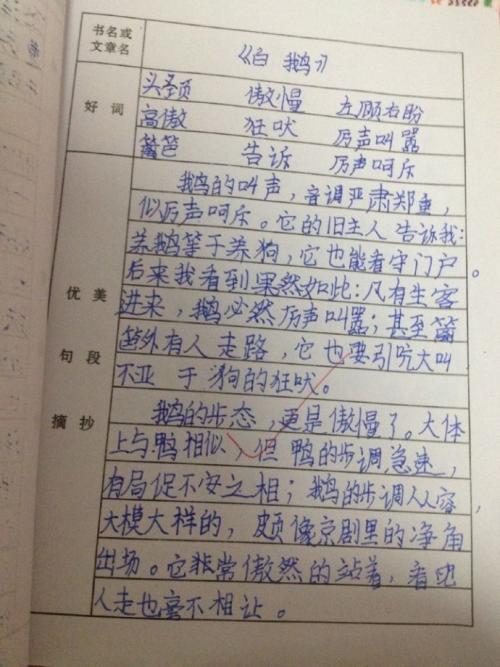 书名或
文章名
《白 鹅》
好词
头颈 傲慢 左顾右盼
高傲 狂吠 厉声叫嚣
篱笆 告诉 厉声呵斥
优美
句段
摘抄
我鹅的叫声，音调严肃郑重，
似厉声呵斥。它的旧主人告诉我：
养鹅等于养狗，它也能看守门户。
后来我看到果然如此：凡有生客
进来，鹅必然厉声叫嚣；甚至篱
笆外有人走路，它也要引吭大叫
不亚于狗的狂吠。
我鹅的步态，更是傲慢了。大体
上与鸭相似，但鸭的步调急速，
有局促不安之相；鹅的步调从容，
大模大样的，颇像京剧里的净角
出场。它非常傲然的站着，看见
人走也毫不相让。